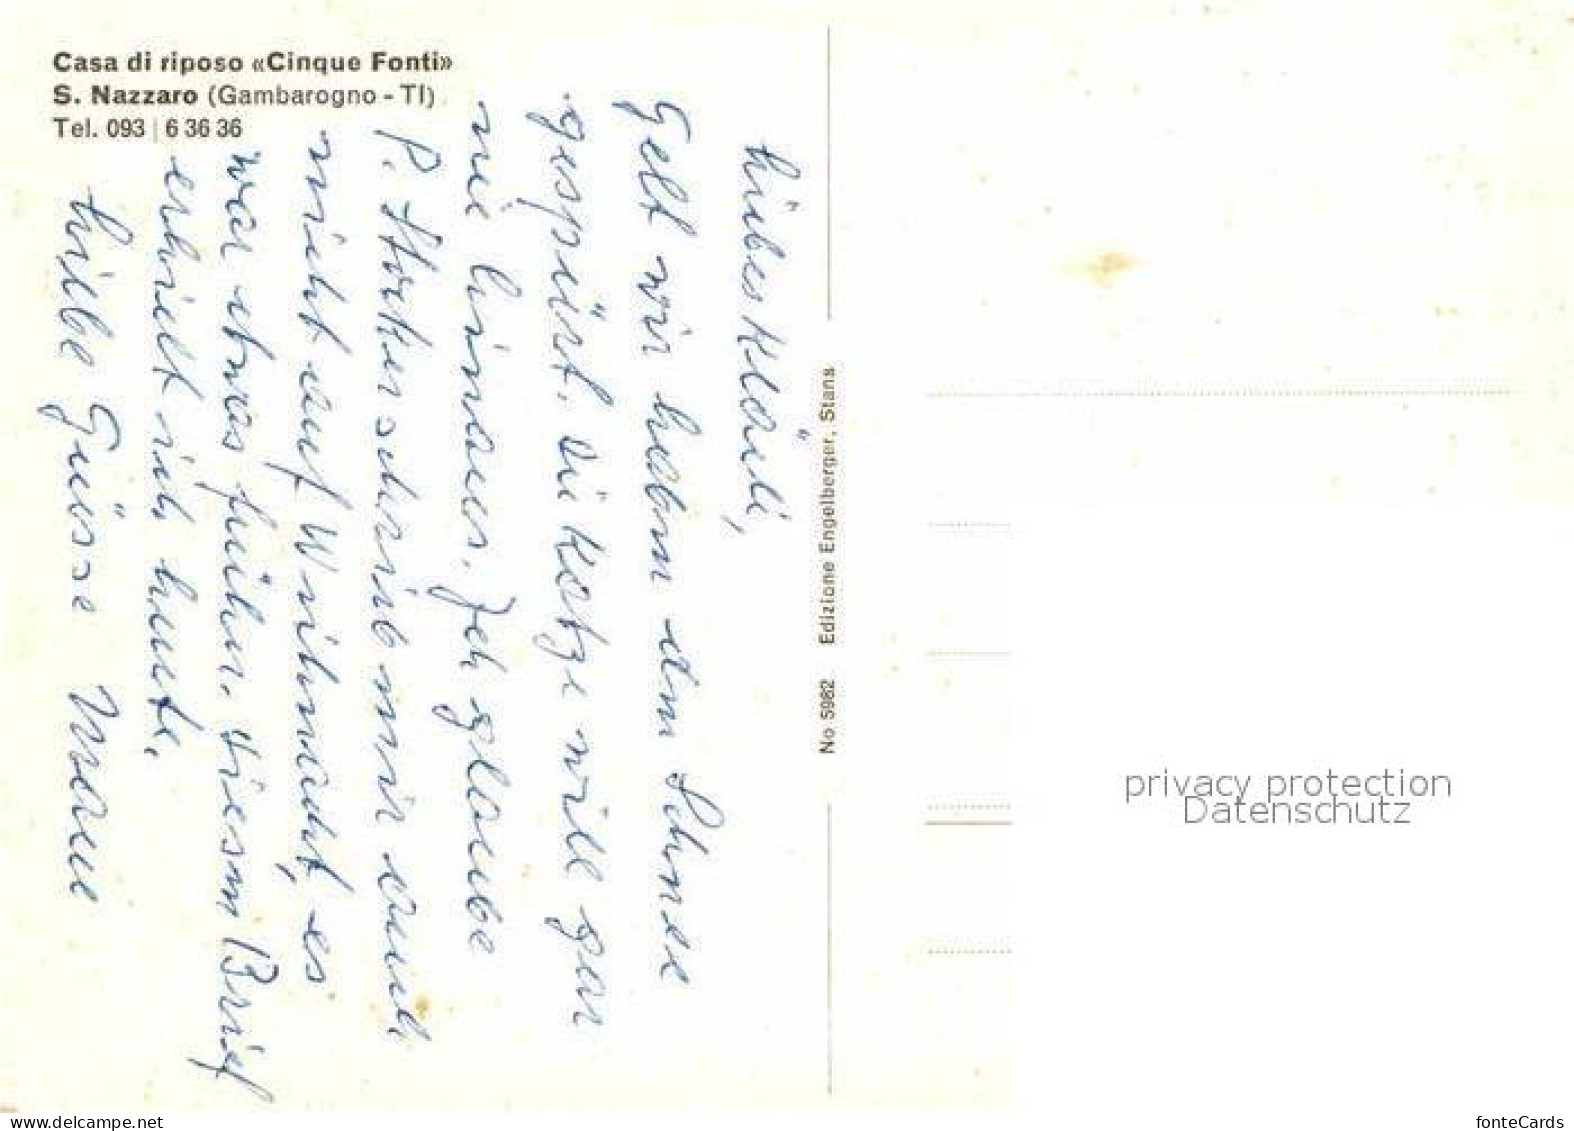 Casa di riposo «Cinque Fonti»
S. Nazzaro (Gambarogno - TI)
Tel. 093 | 6 36 36
Liebes Klädi,
Gelt wir haben den Schnee
gespürt. Die Katze will gar
nie hinaus. Ich glaube
P. schrieb mir auch
nicht auf Weihnacht, es
war etwas früher. Diesen Brief
erhielt ich heute.
Liebe Grüsse
No 5982 Edizione Engelberger, Stans
privacy protection
Datenschutz
www.delcampe.net
fonteCards